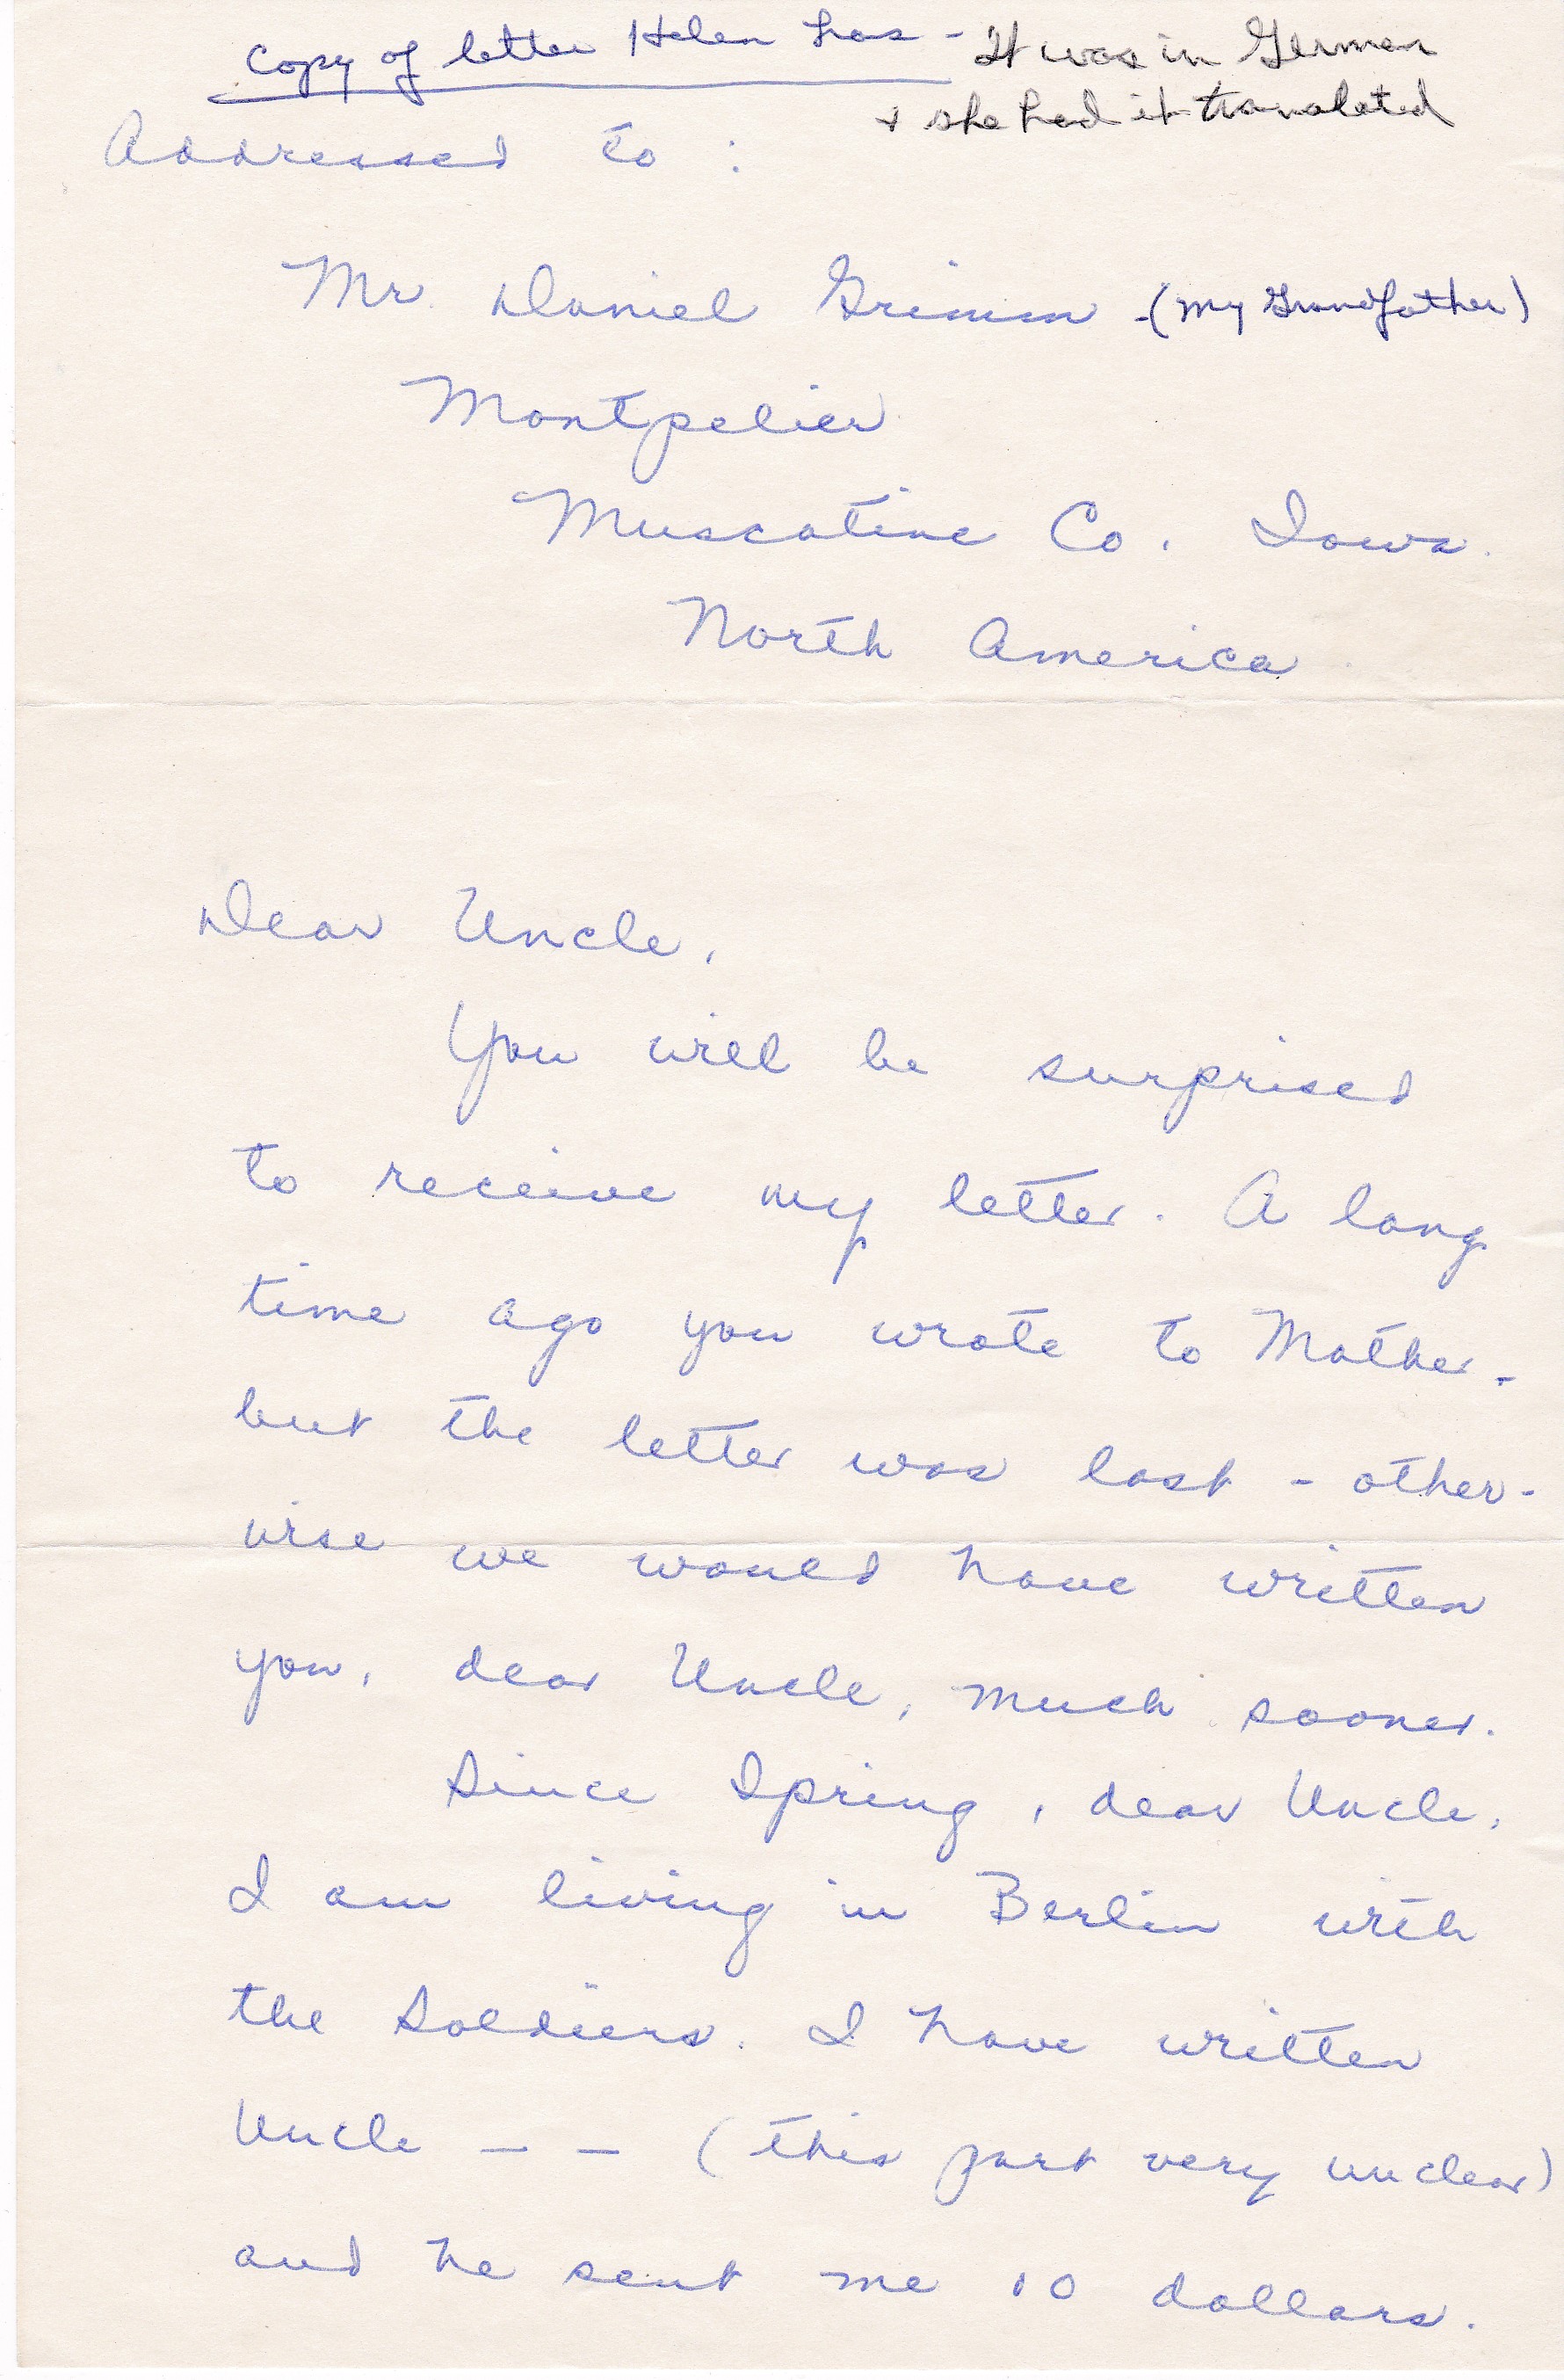 Copy of letter Helen has - It was in German
+ she had it translated
Addressed to :
Mr. Daniel Grimm -(my Grandfather)
Montpelier
Muscatine Co. Iowa.
North America
Dear Uncle,
You will be surprised
to receive my letter. A long
time ago you wrote to Mother -
but the letter was lost - other-
wise we would have written
you, dear Uncle, much sooner.
Since Spring, dear Uncle,
I am living in Berlin with
the Soldiers. I have written
Uncle — — (this part very unclear)
and he sent me 10 dollars.